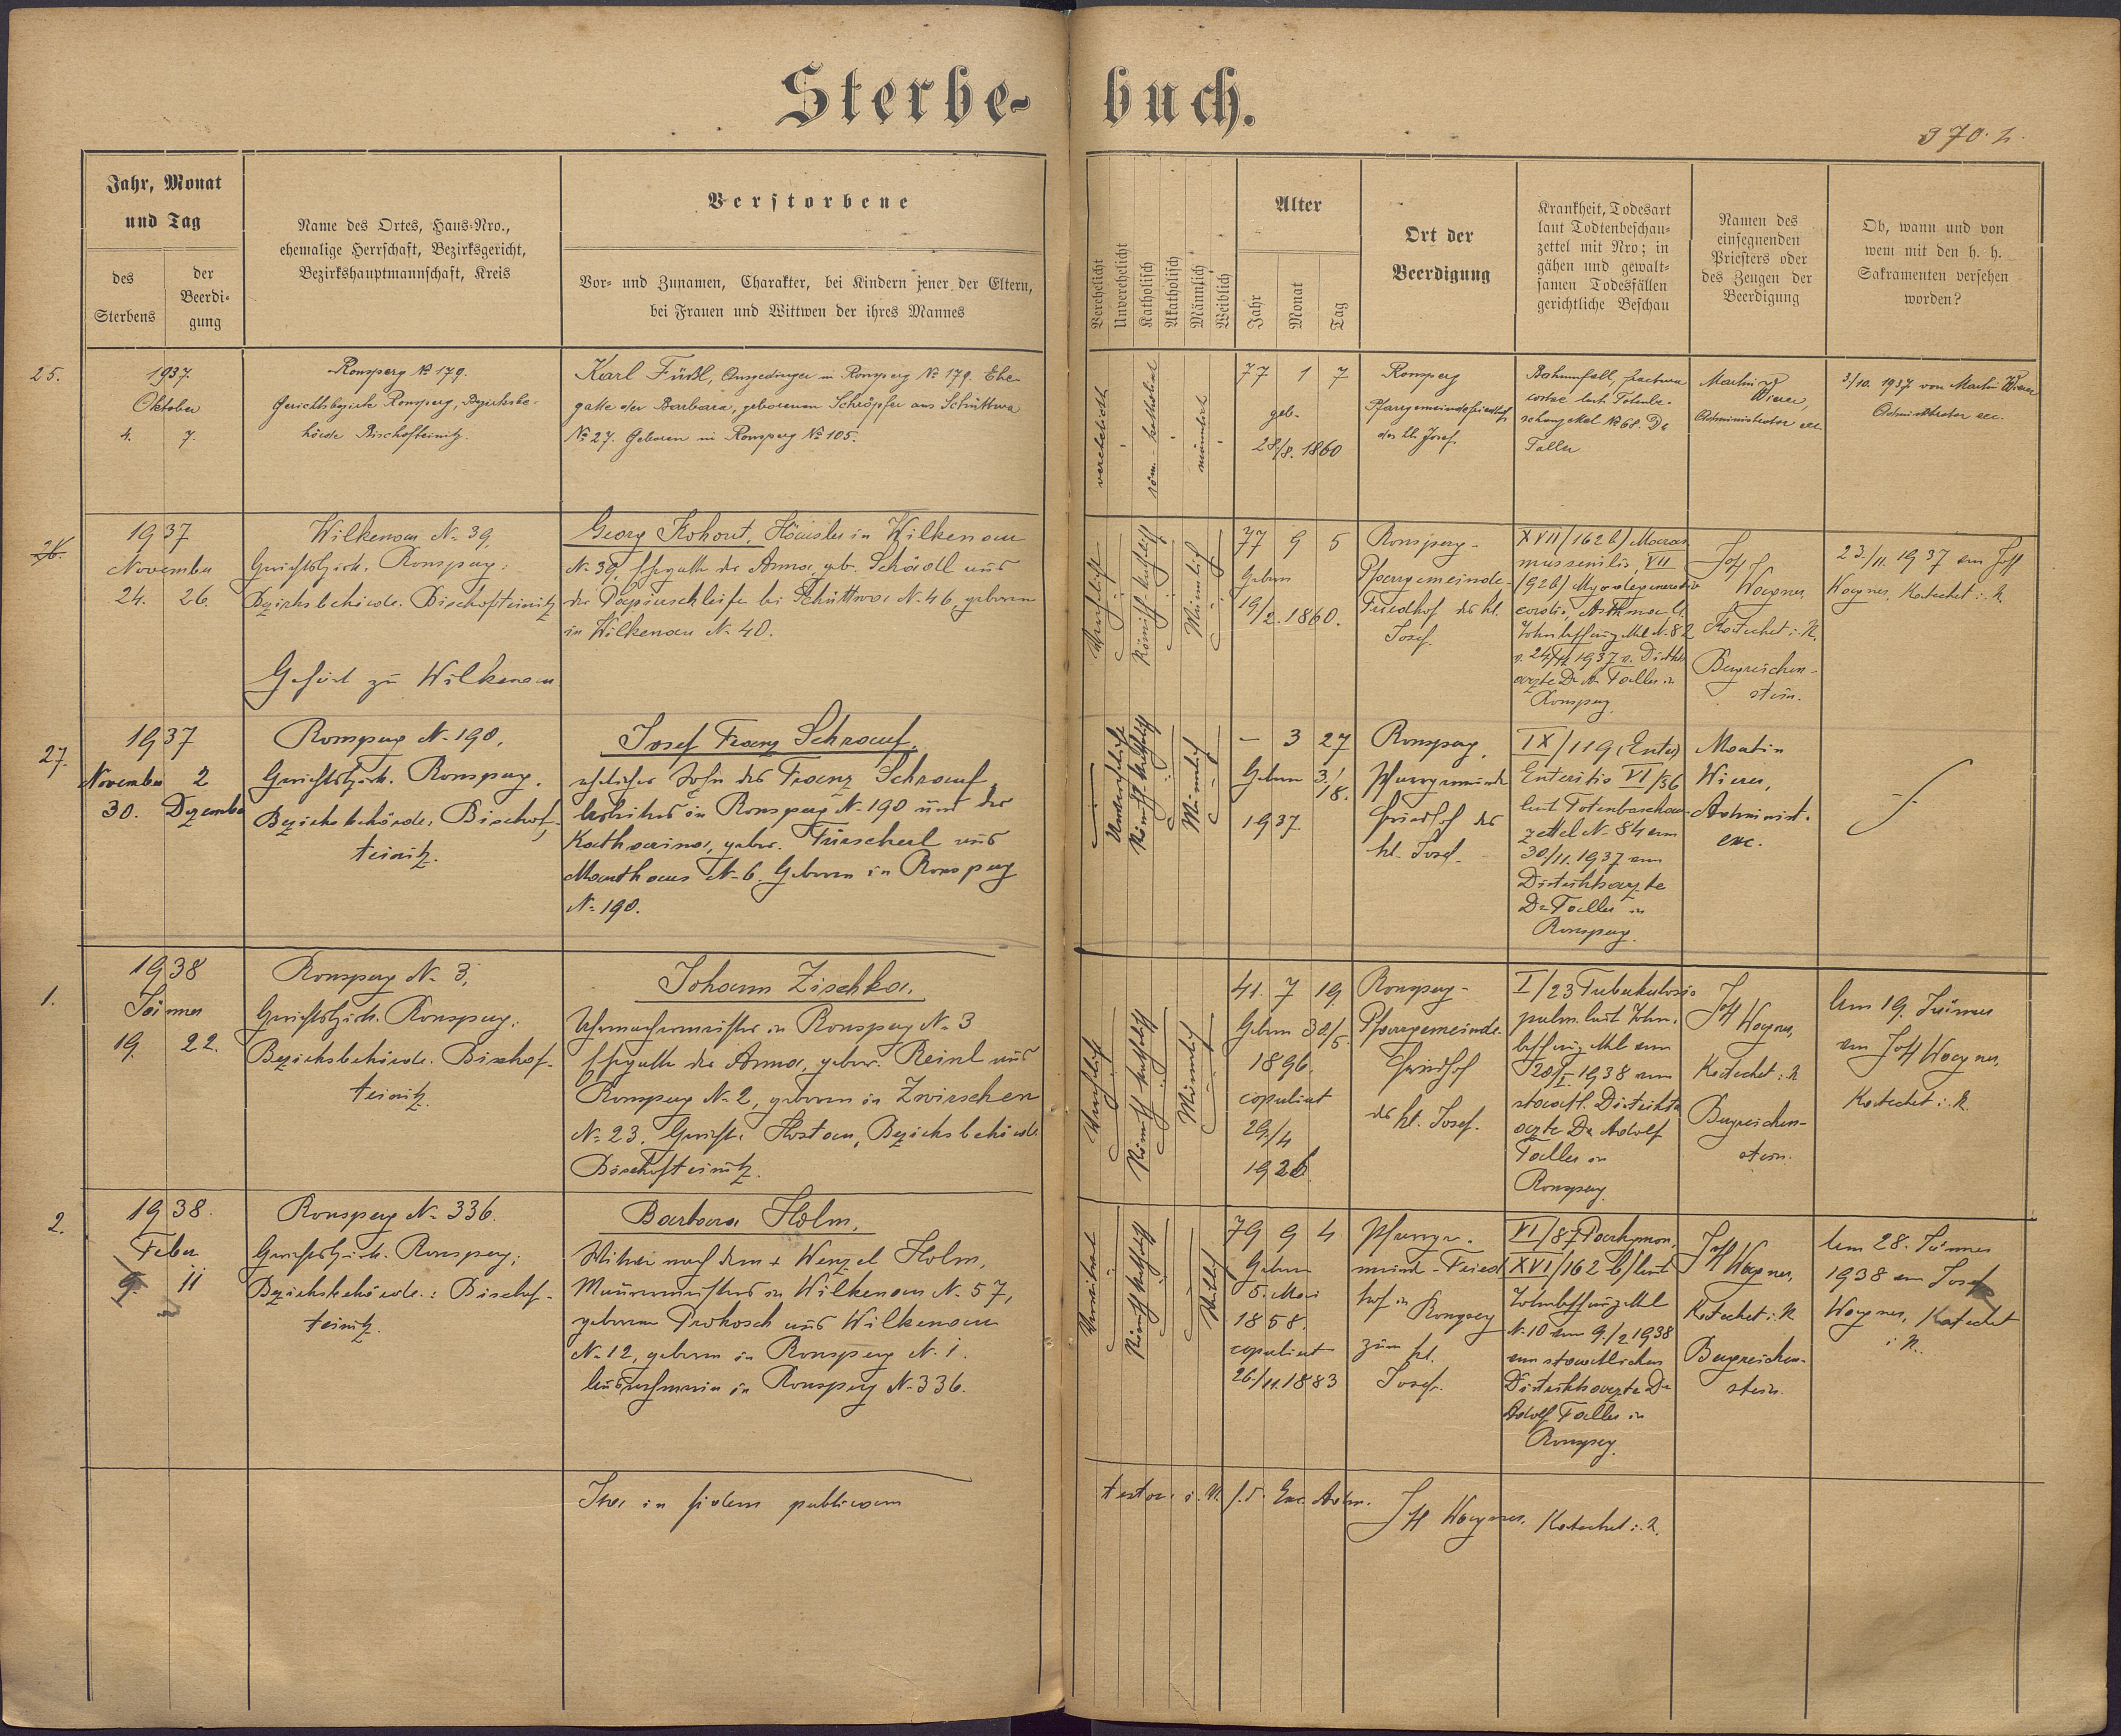 Sterbe-
buch.
370.
Jahr, Monat
und Tag
des
Sterbens
der
Beerdi-
gung
Name des Ortes, Haus-Nro.,
ehemalige Herrschaft, Bezirksgericht,
Bezirkshauptmannschaft, Kreis
Verstorbene
Vor- und Zunamen, Charakter, bei Kindern jener der Eltern,
bei Frauen und Wittwen der ihres Mannes
Verehelicht
Unverehelicht
Katholisch
Akatholisch
Männlich
Weiblich
Alter
Jahr
Monat
Tag
Ort der
Beerdigung
Krankheit, Todesart
laut Todtenbeschau-
zettel mit Nro; in
gähen und gewalt-
samen Todesfällen
gerichtliche Beschau
Namen des
einsegnenden
Priesters oder
des Zeugen der
Beerdigung
Ob, wann und von
wem mit den h. h.
Sakramenten versehen
worden?
25.
1937.
Oktober
4. 7.
Ronsperg № 179.
Gerichtsbezirk Ronsperg, Bezirksbe-
hörde Bischofteinitz.
Karl Füßl, Ausgedinger in Ronsperg № 179. Ehe-
gatte der Barbara, geborenen Schröpfer aus Schüttwa
№ 27. Geboren in Ronsperg № 105.
verehelicht
röm.-katholisch
männlich
77 1 7
geb.
28/8. 1860
Ronsperg
Pfarrgemeindefriedhof
des hl. Josef.
Bahnunfall, fractura
costae laut Totenbe-
schauzettel № 68. Dr
Faller
Martin
Wierer,
Administrator exc.
3/10. 1937 von Martin Wierer
Administrator exc.
26.
1937
November
24. 26.
Wilkenau N. 39,
Gerichtsbezirk. Ronsperg;
Bezirksbehörde. Bischofteinitz
Gehört zu Wilkenau
Georg Kohout, Häusler in Wilkenau
N. 39, Ehegatte der Anna, geb. Schödl aus
der Papierschleife bei Schüttwa N. 46, geboren
in Wilkenau N. 40.
Verehelicht
Römisch-katholisch
Männlich
77 9 5
Geboren
19/2. 1860.
Ronsperg-
Pfarrgemeinde-
Friedhof des hl.
Josef.
XVII/162 b/ Maras
mus senilis, VII
/92b/ Myodegeneratio
cordis, Asthma lt.
Totenbeschauzettel N. 82
v. 24/11 1937 v. Distrikts
arzte Dr A. Faller in
Ronsperg
Josef
Wagner,
Katechet i. R.
Bergreichen-
stein.
23./11. 1937 von Josef
Wagner, Katechet i. R.
27.
1937
November 2
30. Dezember
Ronsperg N. 190,
Gerichtsbezirk. Ronsperg.
Bezirksbehörde: Bischof-
teinitz.
Josef Franz Schrauf,
ehelicher Sohn des Franz Schrauf
Arbeiters in Ronsperg N. 190 und der
Katharina, gebor. Türscherl aus
Mauthaus N. 6. Geboren in Ronsperg
N. 190.
Unverehelicht
Römisch-katholisch
Männlich
— 3 27
Geboren 3./8.
1937.
Ronsperg,
Pfarrgemeinde
Friedhof des
hl. Josef.
IX/119, (Enter)
Enteritis VI/86
laut Totenbeschau-
zettel N. 84 vom
30/11. 1937 vom
Distriktsarzte
Dr Faller in
Ronsperg.
Martin
Wierer,
Administ.
exc.
1.
1938
Jänner
19. 22.
Ronsperg N. 3,
Gerichtsbezirk. Ronsperg;
Bezirksbehörde. Bischof-
teinitz.
Johann Zischka,
Uhrmachermeister in Ronsperg N. 3
Ehegatte der Anna, gebor. Reinl aus
Ronsperg N. 2, geboren in Zwirschen
N. 23, Gericht. Hostau, Bezirksbehörde
Bischofteinitz.
Verehelicht
Römisch-katholisch
Männlich
41. 7 19
Geboren 30/5.
1896.
copuliert
29./4
1926
Ronsperg-
Pfarrgemeinde-
Friedhof
des hl. Josef.
I/23 Tuberkulosis
pulm. laut Toten-
beschauzettel vom
20/I. 1938 vom
staatl. Distrikts
arzte Dr Adolf
Faller in
Ronsperg
Josef Wagner,
Katechet i. R.
Bergreichen-
stein.
Am 19. Jänner
von Josef Wagner,
Katechet i. R.
2.
1938.
Feber
9. 11
Ronsperg N. 336.
Gerichtsbezirk. Ronsperg;
Bezirksbehörde.: Bischof-
teinitz.
Barbara Holm,
Witwe nach dem + Wenzel Holm,
Maurermeisters in Wilkenau N. 57,
geborene Prokosch aus Wilkenau
N. 12, geboren in Ronsperg N. 1.
Ausnehmerin in Ronsperg N. 336.
Verwitwet
Römisch-katholisch
Weiblich
79 9 4
Geboren
5. Mai
1858.
copuliert
26./11. 1883
Pfarrge-
meind-Fried
hof in Ronsperg
zum hl.
Josef.
XVI/162 b/ laut
Totenbeschauzettel
N. 10 vom 9./2 1938
vom staatlichen
Distriktsarzte Dr
Adolf Faller in
Ronsperg.
Josef Wagner,
Katechet i. R
Bergreichen-
stein.
Am 28. Jänner
1938 von Josef
Wagner, Katechet
i. R.
Ita in fidem publicam
testor. Josef Wagner, Katechet i. R.